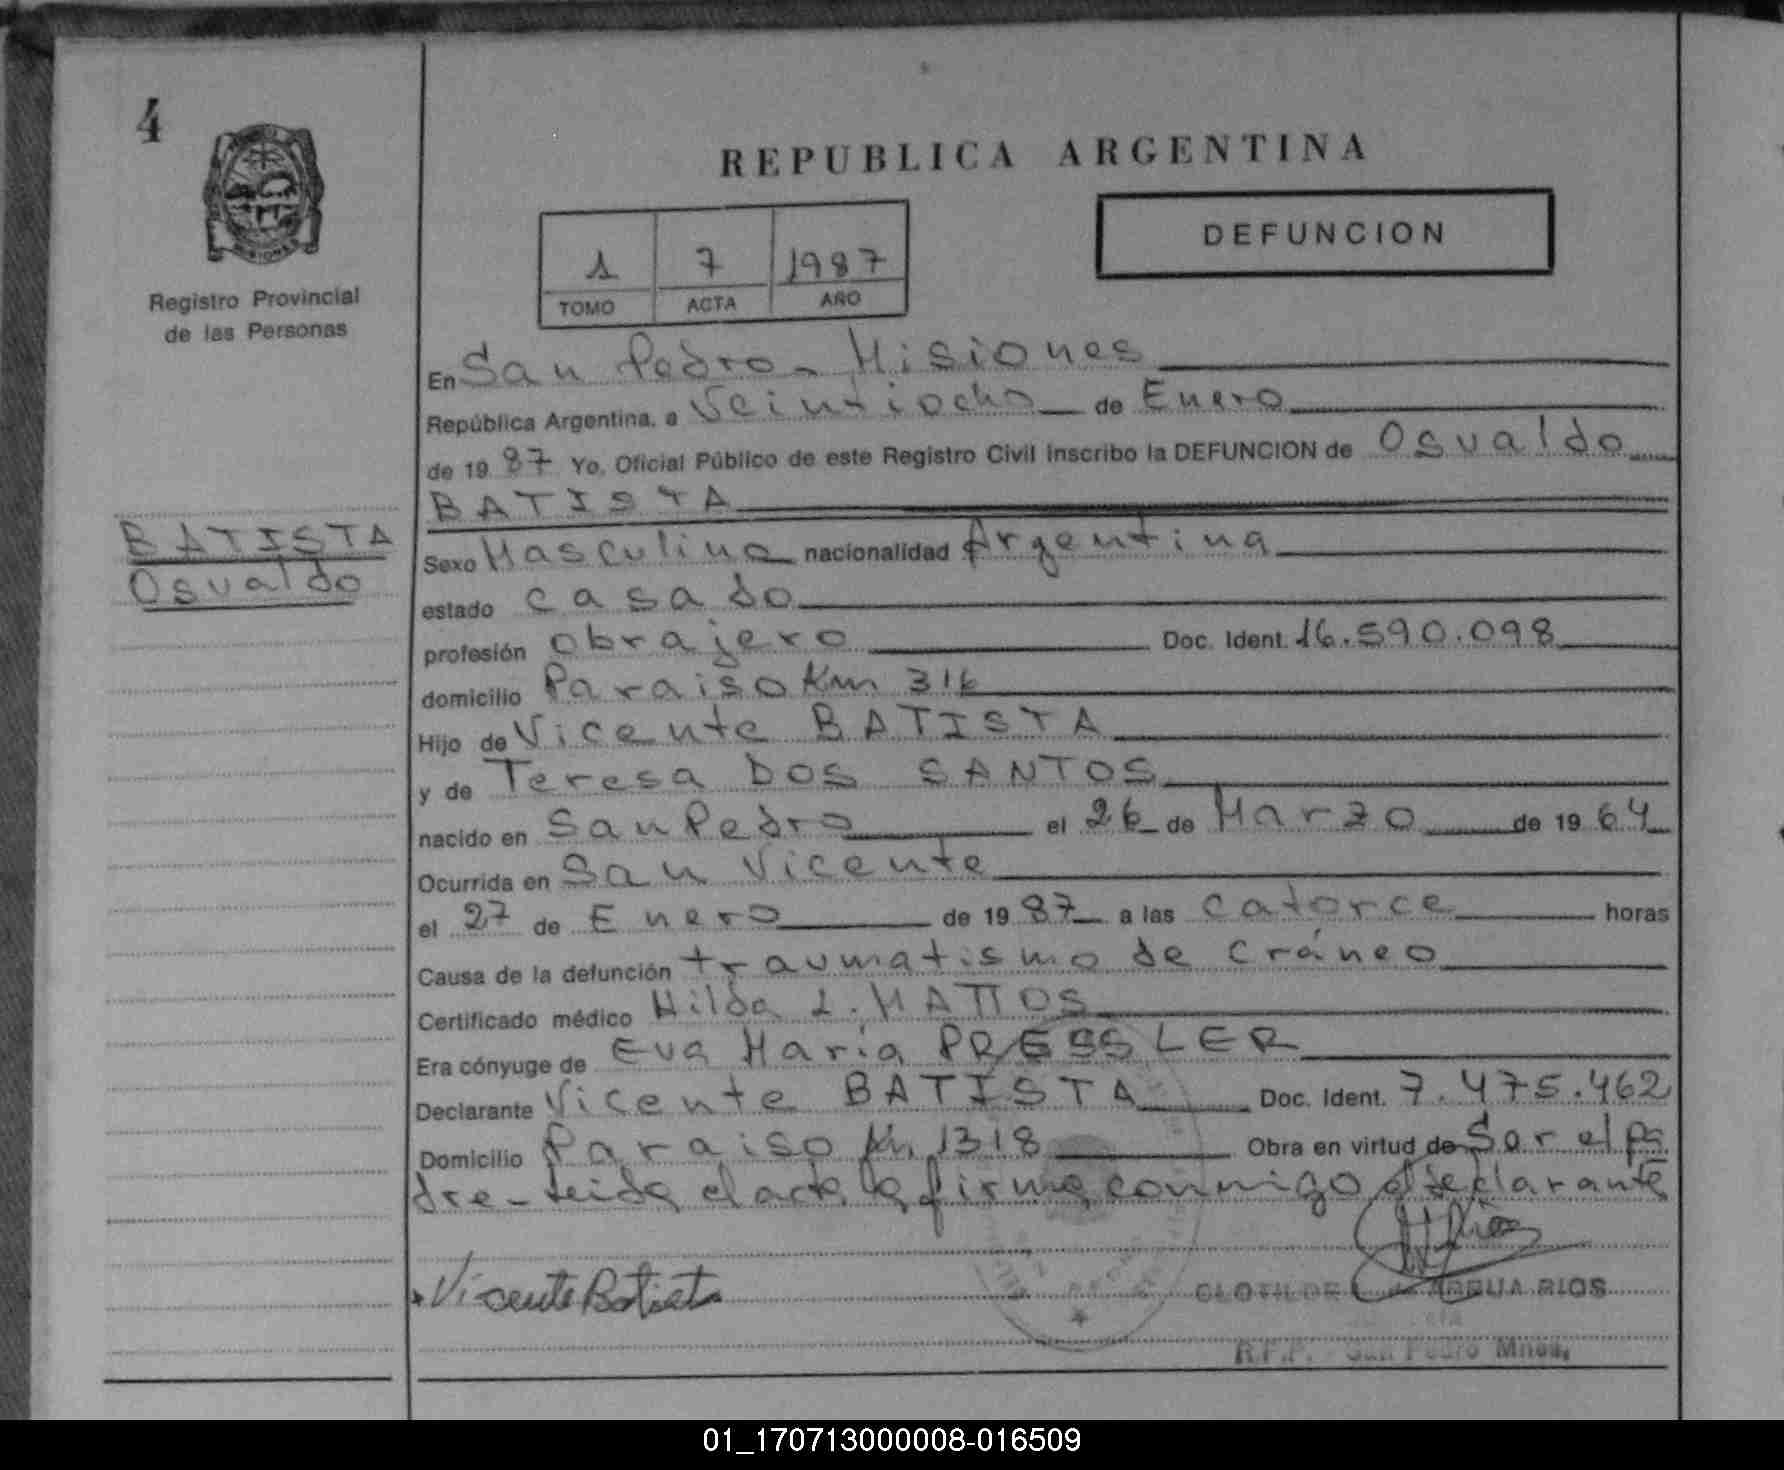 4
REPUBLICA ARGENTINA
DEFUNCION
1 7 1987
TOMO ACTA AÑO
MISIONES
Registro Provincial
de las Personas
En San Pedro - Misiones
República Argentina, a Veintiocho de Enero
de 19 87 Yo, Oficial Público de este Registro Civil inscribo la DEFUNCION de Osvaldo
BATISTA
BATISTA
Osvaldo
Sexo Masculino nacionalidad Argentina
estado casado
profesión obrajero Doc. Ident. 16.590.098
domicilio Paraiso Km 316
Hijo de Vicente BATISTA
y de Teresa DOS SANTOS
nacido en San Pedro el 26 de Marzo de 19 64
Ocurrida en San Vicente
el 27 de Enero de 19 87 a las catorce horas
Causa de la defunción traumatismo de cráneo
Certificado médico Hilda L. MATTOS
Era cónyuge de Eva Maria PRESSLER
Declarante Vicente BATISTA Doc. Ident. 7.475.462
Domicilio Paraiso Km 1318 Obra en virtud de Ser el pa
dre - leida el acta la firma conmigo el declarante
Vicente Batista
CLOTILDE RIOS
R.P.P. - San Pedro Mnes.
01_170713000008-016509